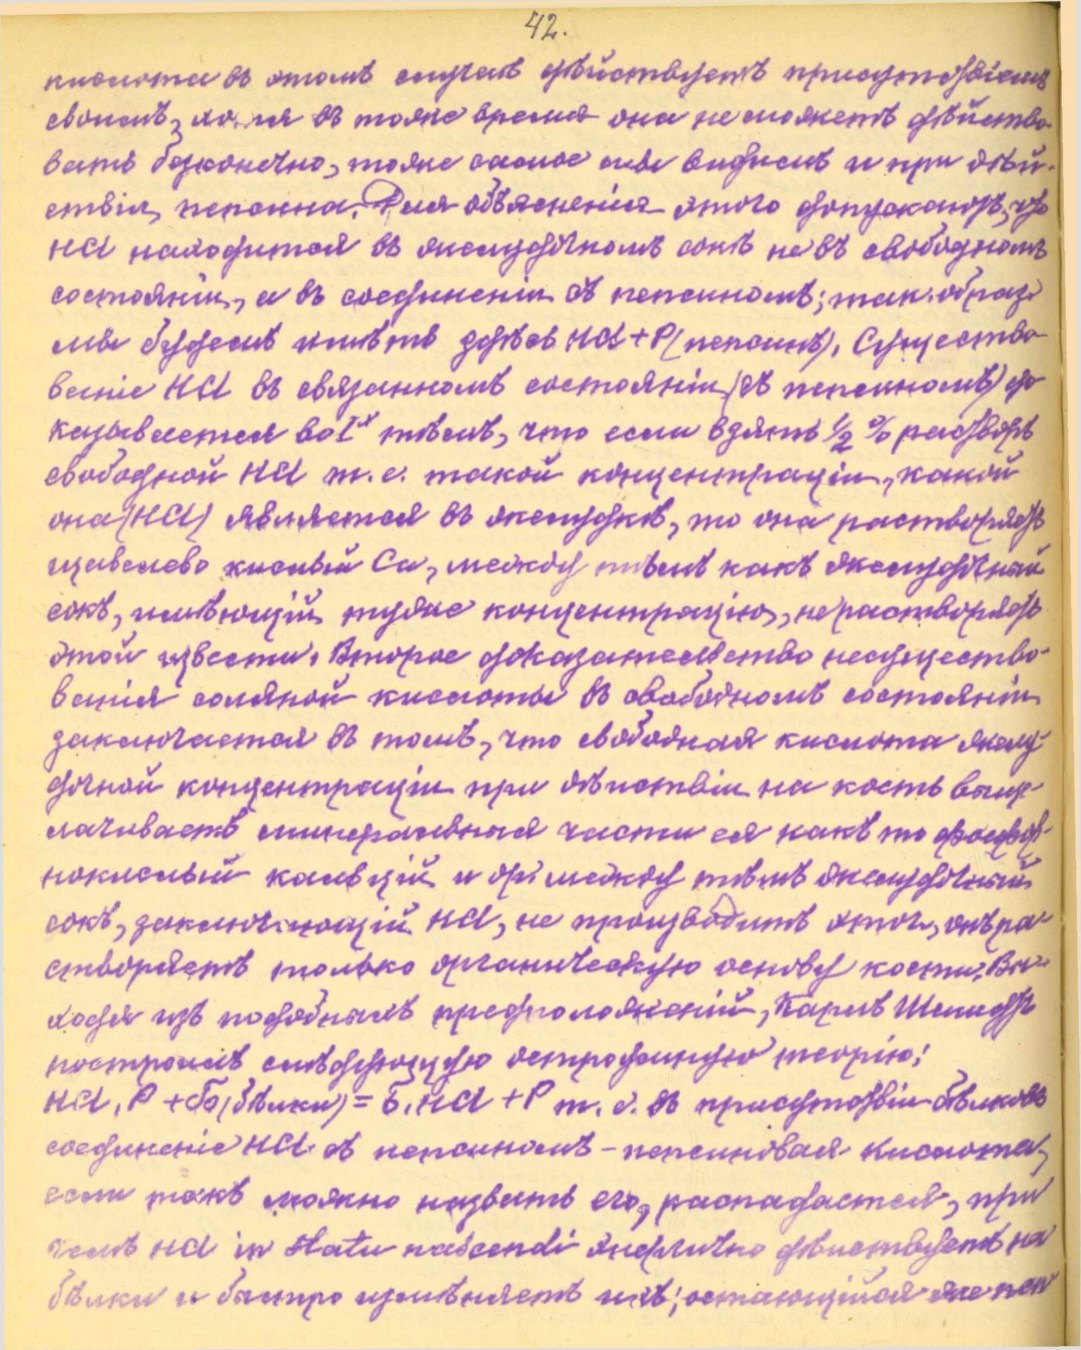 42.
кислота въ этомъ случаѣ дѣйствуетъ присутствіемъ
своимъ, хотя въ тоже время она не можетъ дѣйство-
вать безконечно, тоже самое мы видимъ и при дѣй-
ствіи пепсина. Для объясненія этого допускаютъ, что
HCl находится въ желудочномъ сокѣ не въ свободномъ
состояніи, а въ соединеніи съ пепсиномъ; так. образ.
мы будемъ имѣть здѣсь HCl + P (пепсинъ). Существо-
ваніе HCl въ связанномъ состояніи (съ пепсиномъ) до-
казывается во Iх тѣмъ, что если взять 1/2 % растворъ
свободной HCl т. е. такой концентраціи, какой
она (HCl) является въ желудкѣ, то она растворяетъ
щавелево кислый Ca, между тѣмъ какъ желудочный
сокъ, имѣющій туже концентрацію, не растворяетъ
этой извести. Второе доказательство несущество-
ванія соляной кислоты въ свободномъ состояніи
заключается въ томъ, что свободная кислота желу-
дочной концентраціи при дѣйствіи на кость выще-
лачиваетъ минеральныя части ея какъ то фосфор-
нокислый кальцій и др. между тѣмъ желудочный
сокъ, заключающій HCl, не производитъ этого, онъ ра-
створяетъ только органическую основу кости. Вы-
ходя изъ подобныхъ предположеній, Карлъ Шмидтъ
построилъ слѣдующую остроумную теорію:
HCl, P + б (бѣлки) = б. HCl + P т. е. въ присутствіи бѣлковъ
соединеніе HCl съ пепсиномъ – пепсиновая кислота,
если такъ можно назвать его, распадается, при
чемъ HCl in statu nascendi энергично дѣйствуетъ на
бѣлки и быстро измѣняетъ ихъ; остающійся же пеп